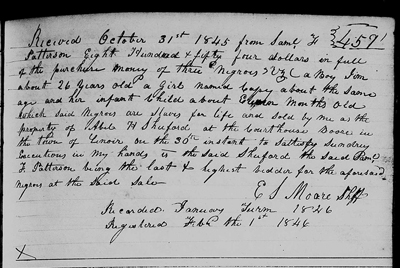 Received October 31st 1845 from Saml F
Patterson Eight Hundred & fifty four dollars in full
of the purchase money of three Negroes Viz (a Boy Jim
about 26 Years old a Girl Named about the same
age and her infant Child about Months old
which said Negroes are Slaves for life and sold by me as the
property of Abile H Shuford at the Courthouse Doore in
the town of Lenoir on the 30th instant to Sattisfy Sundrey
Executions in my hands vs the said Shuford the said Saml
F. Patterson being the last & highest bidder for the aforesaid
Negroes at the said Sale
E S Moore Shff
Recorded January Turm 1846
Registered Feb the 1st 1846
X